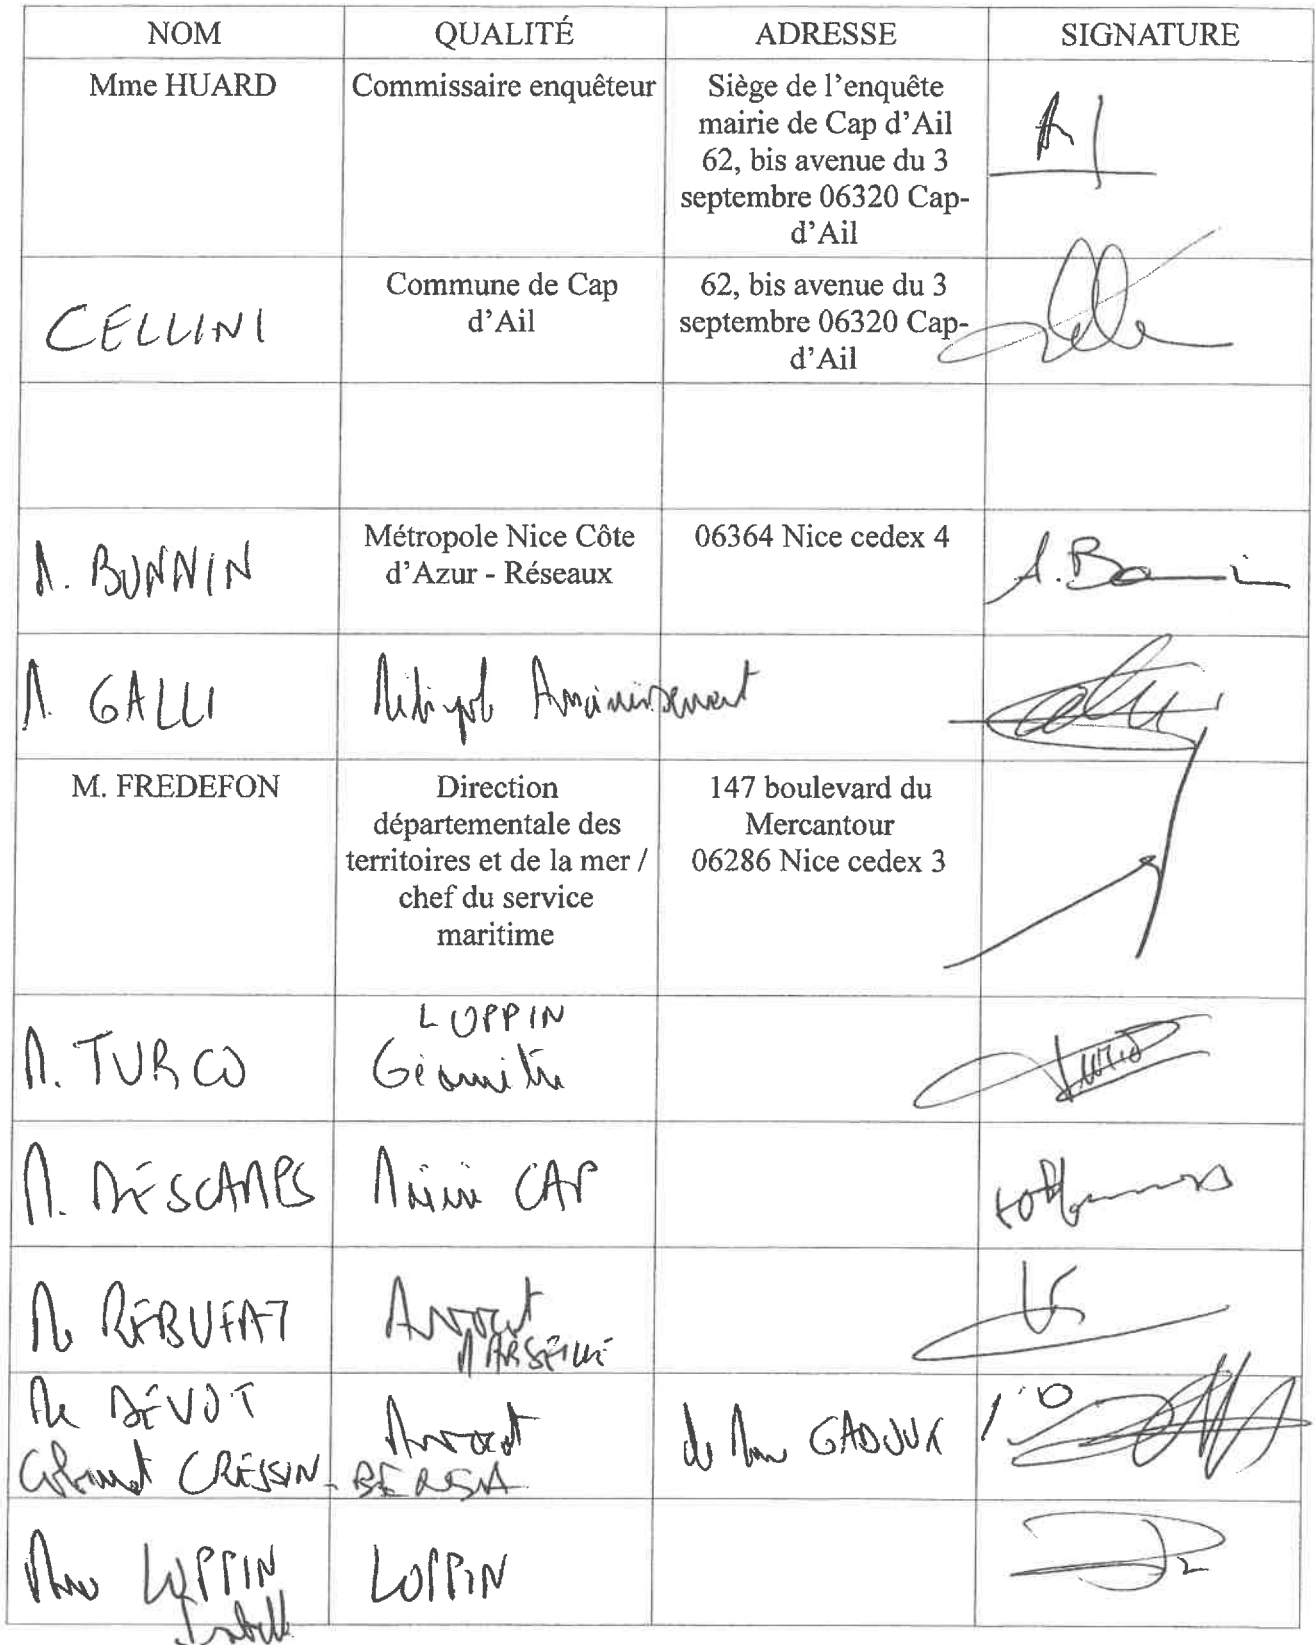 NOM QUALITÉ ADRESSE SIGNATURE
Mme HUARD
Commissaire enquêteur
Siège de l'enquête
mairie de Cap d'Ail
62, bis avenue du 3
septembre 06320 Cap-
d'Ail
CELLINI
Commune de Cap
d'Ail
62, bis avenue du 3
septembre 06320 Cap-
d'Ail
M. BONNIN
Métropole Nice Côte
d'Azur - Réseaux
06364 Nice cedex 4
M. GALLI
M. FREDEFON
Direction
départementale des
territoires et de la mer /
chef du service
maritime
147 boulevard du
Mercantour
06286 Nice cedex 3
M. TURCO
LOPPIN
Géomètre
M. DESCAMPS
CAP
Me REBUFAT
Avocat
MARSEILLE
Me DEVOT
Avocat
de Mme
Cabinet CRESSIN - BERSIA
Mme LOPPIN
Isabelle
LOPPIN